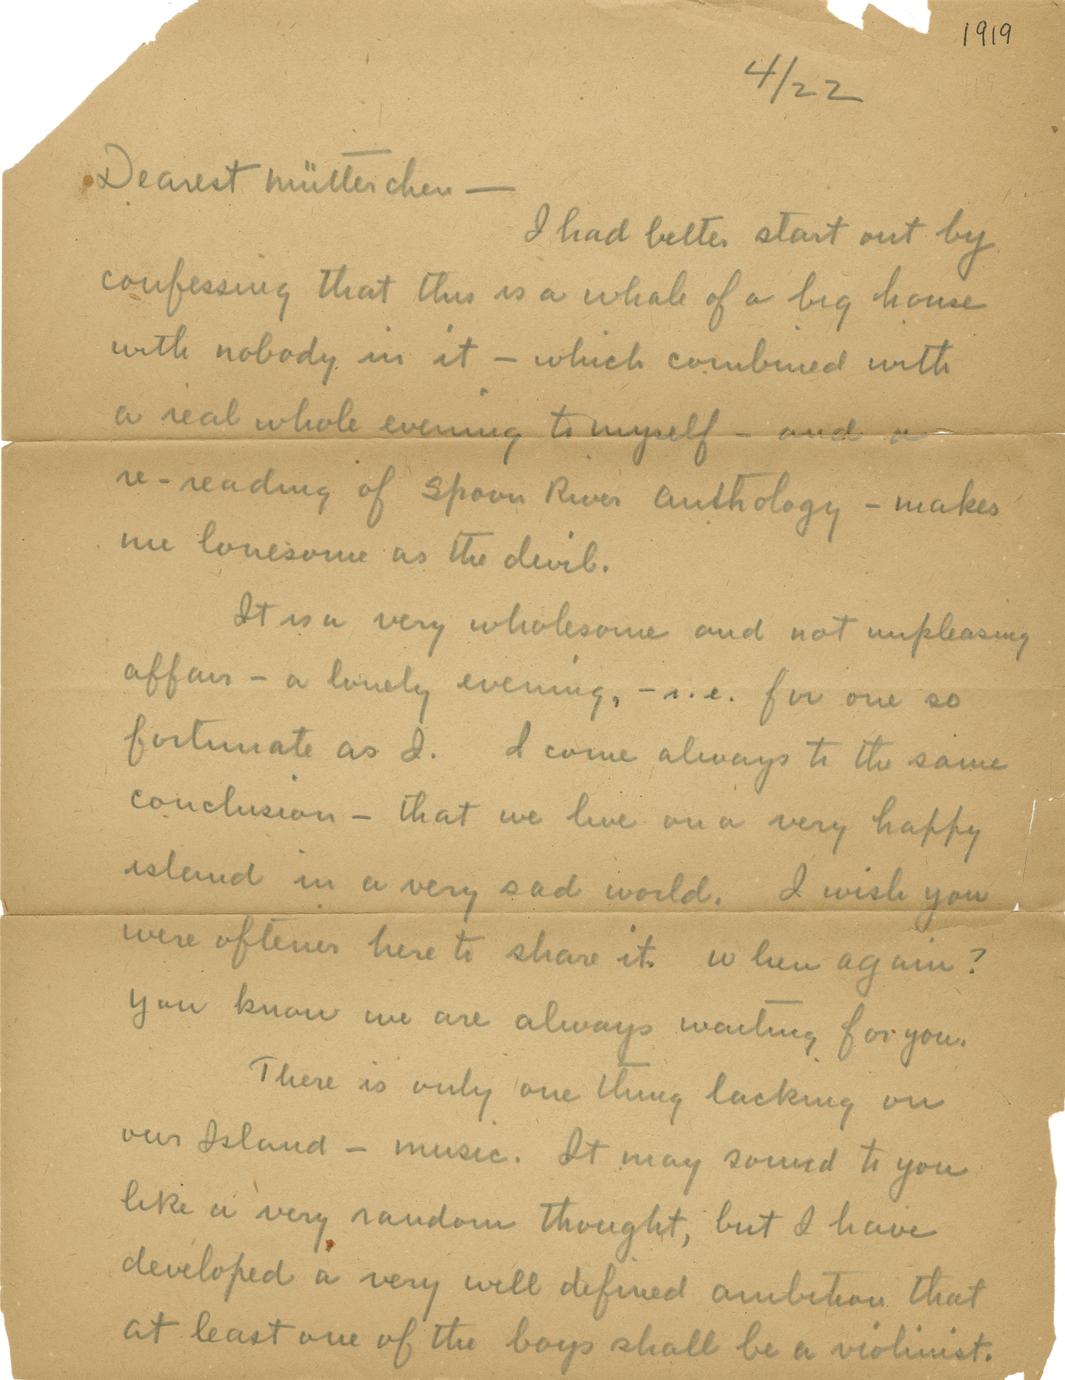 1919
4/22
Dearest Mütterchen —
I had better start out by
confessing that this is a whale of a big house
with nobody in it – which combined with
a real whole evening to myself – and a
re-reading of Spoon River Anthology – makes
me lonesome as the devil.
It is a very wholesome and not unpleasing
affair – a lonely evening, – i.e. for one so
fortunate as I. I come always to the same
conclusion – that we live on a very happy
island in a very sad world. I wish you
were oftener here to share it. When again?
You know we are always waiting for you.
There is only one thing lacking on
our Island – music. It may sound to you
like a very random thought, but I have
developed a very well defined ambition that
at least one of the boys shall be a violinist.